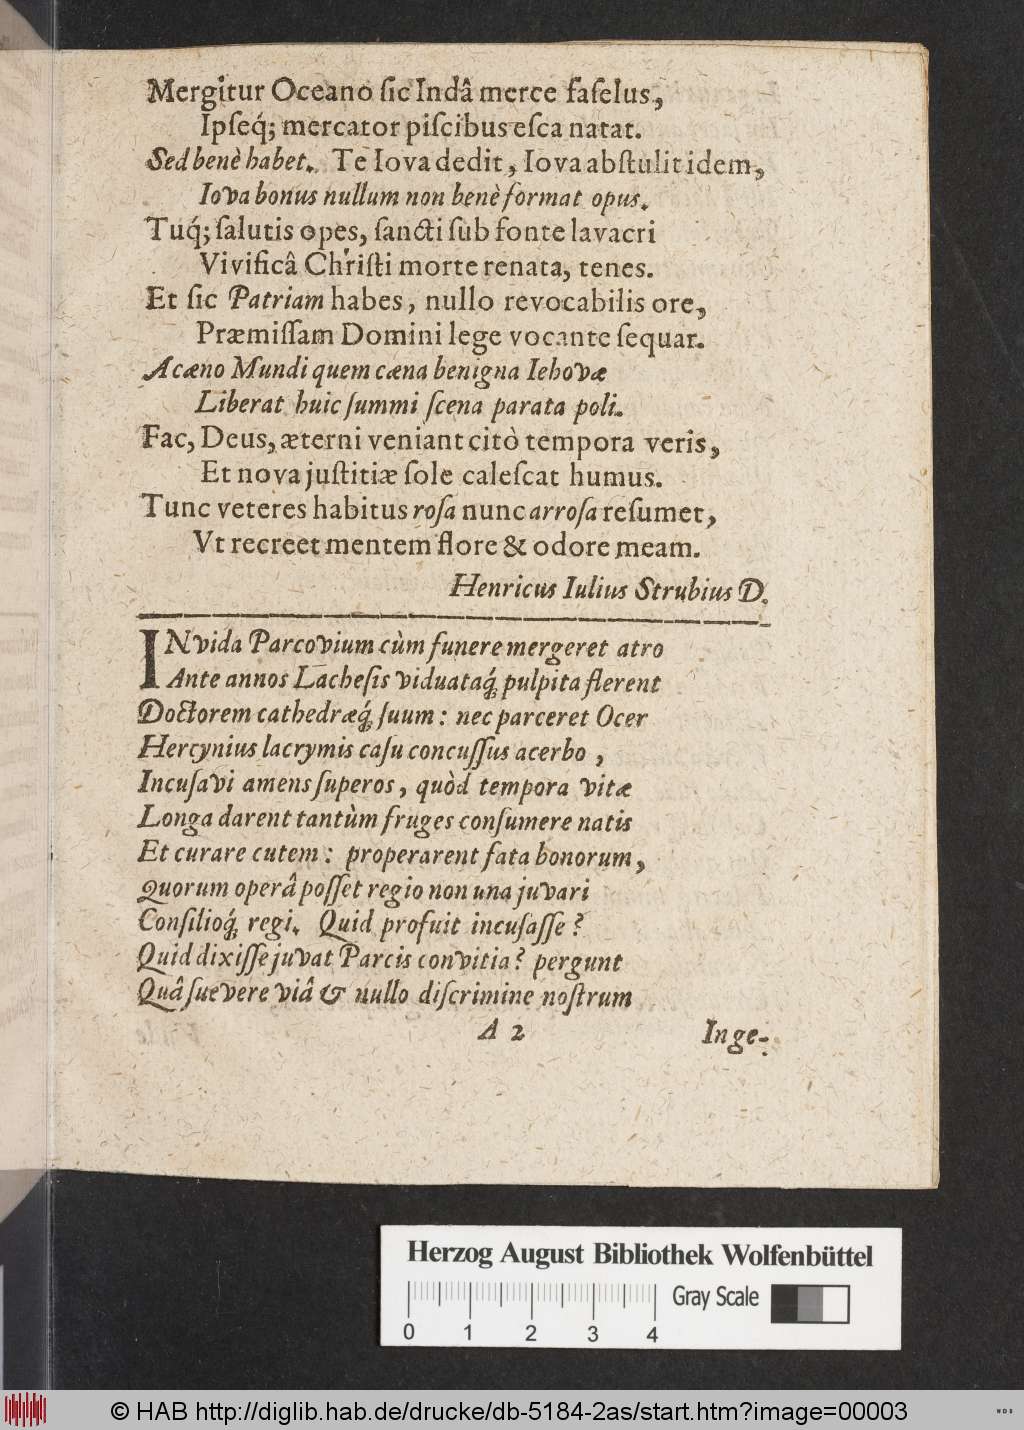 Mergitur Oceano ſic Indâ merce faſelus,
Ipſeq́; mercator piſcibus eſca natat.
Sed benè habet. Te Iova dedit, Iova abſtulit idem,
Iova bonus nullum non benè format opus.
Tuq́; ſalutis opes, ſancti ſub fonte lavacri
Vivificâ Chriſti morte renata, tenes.
Et ſic Patriam habes, nullo revocabilis ore,
Præmiſſam Domini lege vocante ſequar.
A cæno Mundi quem cæna benigna Iehovæ
Liberat huic ſummi ſcena parata poli.
Fac, Deus, æterni veniant citò tempora veris,
Et nova juſtitiæ ſole caleſcat humus.
Tunc veteres habitus roſa nunc arroſa reſumet,
Vt recreet mentem flore & odore meam.
Henricus Iulius Strubius D.
INvida Parcovium cùm funere mergeret atro
Ante annos Lacheſis viduataq́; pulpita flerent
Doctorem cathedræq́; ſuum: nec parceret Ocer
Hercynius lacrymis caſu concuſſus acerbo,
Incuſavi amens ſuperos, quòd tempora vitæ
Longa darent tantùm fruges conſumere natis
Et curare cutem: properarent fata bonorum,
Quorum operâ poſſet regio non una juvari
Conſilioq́; regi. Quid profuit incuſaſſe?
Quid dixiſſe juvat Parcis convitia? pergunt
Quâ ſuevere viâ & nullo diſcrimine noſtrum
A 2
Inge-
Herzog August Bibliothek Wolfenbüttel
Gray Scale
0 1 2 3 4
© HAB http://diglib.hab.de/drucke/db-5184-2as/start.htm?image=00003